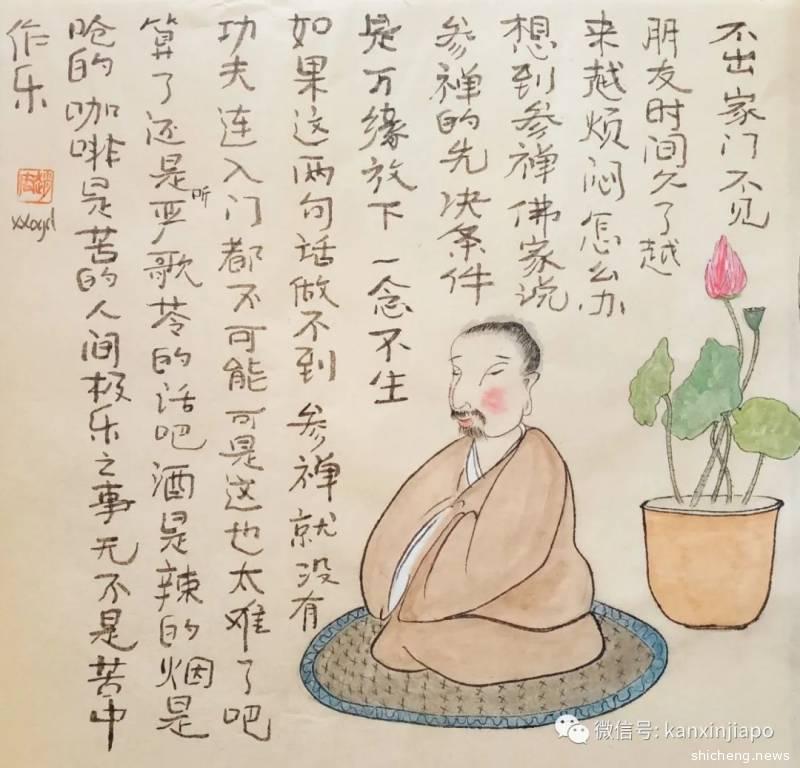 不出家门不见
朋友时间久了越
来越烦闷怎么办
想到参禅佛家说
参禅的先决条件
是万缘放下一念不生
如果这两句话做不到 参禅就没有
功夫连入门都不可能可是这也太难了吧
算了还是听严歌苓的话吧酒是辣的烟是
呛的咖啡是苦的人间极乐之事无不是苦中
作乐
微信号: kanxinjiapo
shicheng.news